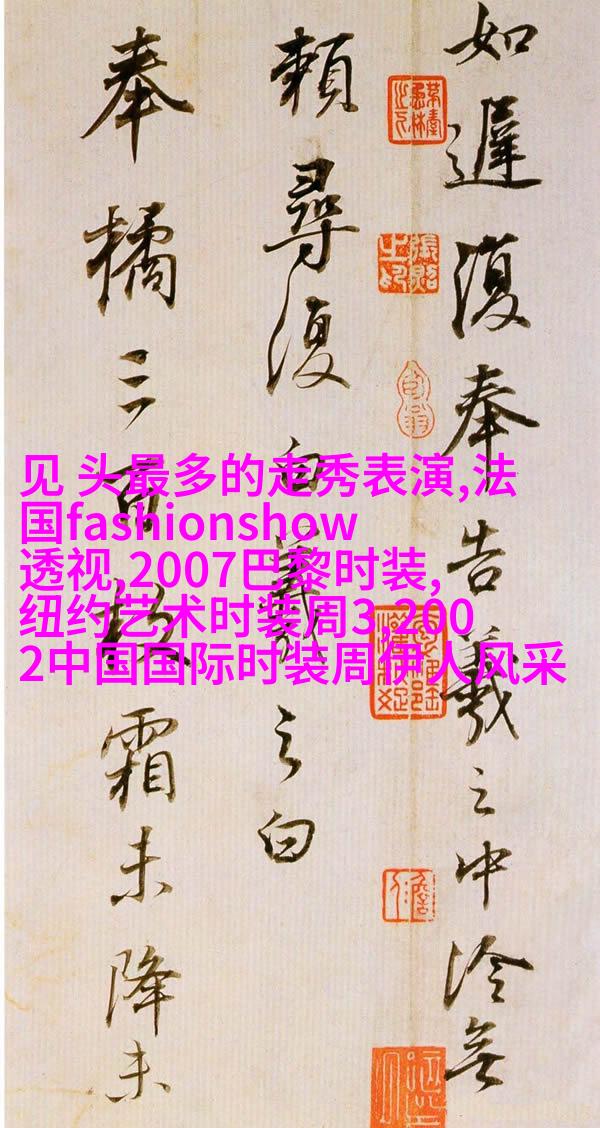 如遲復奉告羲之中冷無
賴尋復白羲之白
奉橘三百枚霜未降未
见 头最多的走秀表演,法
国fashionshow
透视,2007巴黎时装,
纽约艺术时装周3,200
2中国国际时装周伊人风采